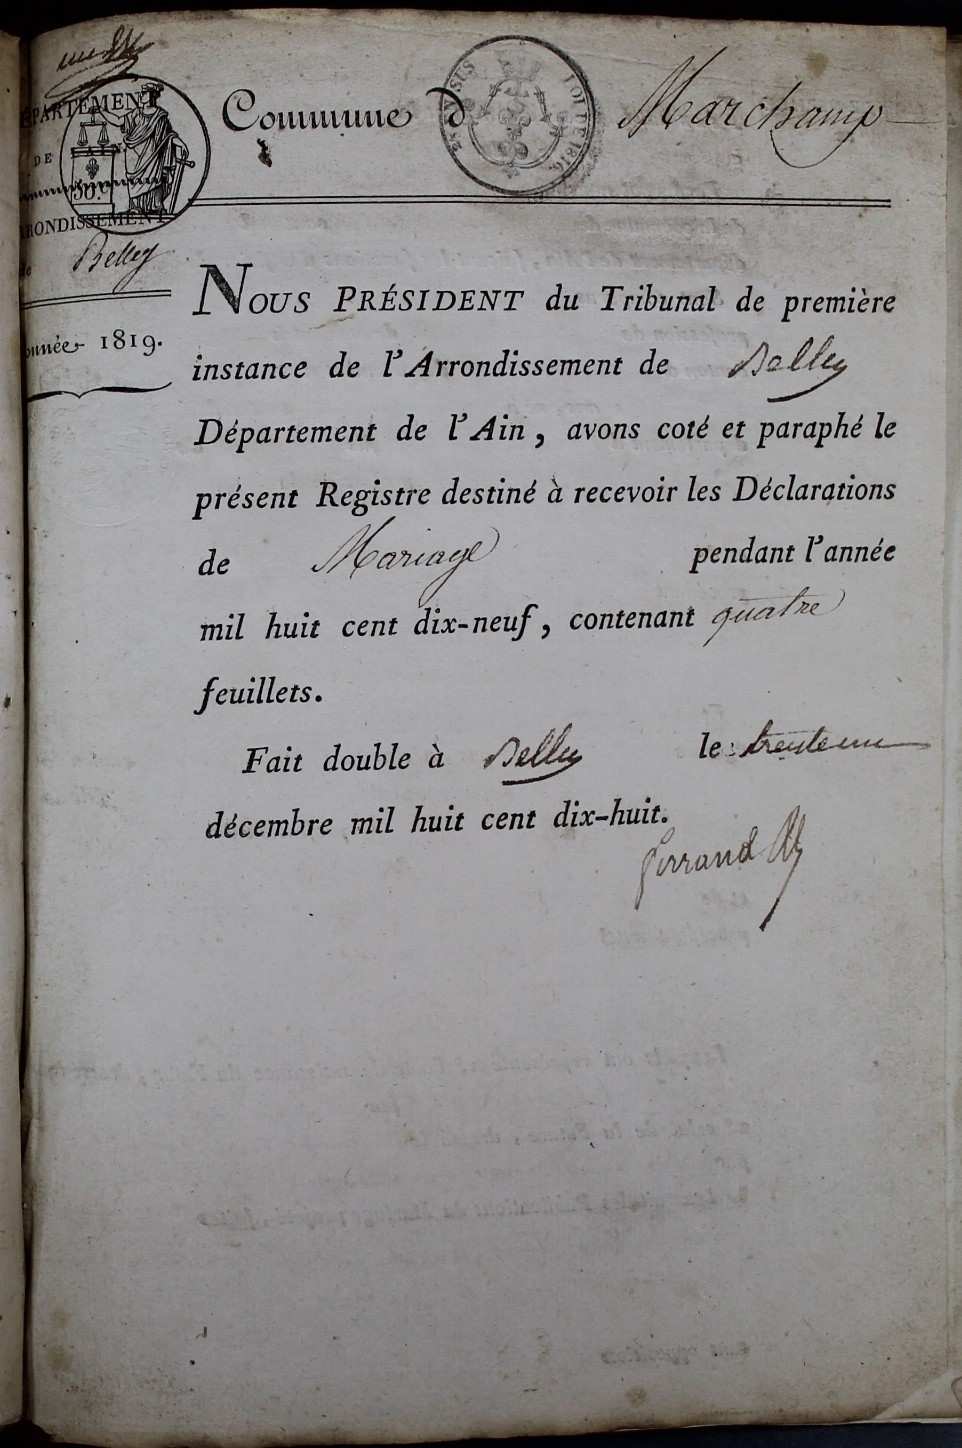 DÉPARTEMENT
DE L'AIN.
50.c
ARRONDISSEMENT
de Belley
Année 1819.
Commune d Marchamp
EN SUS LOI DE 1816.
NOUS PRÉSIDENT du Tribunal de première
instance de l'Arrondissement de Belley
Département de l'Ain, avons coté et paraphé le
présent Registre destiné à recevoir les Déclarations
de Mariage pendant l'année
mil huit cent dix-neuf, contenant quatre
feuillets.
Fait double à Belley le trente un
décembre mil huit cent dix-huit.